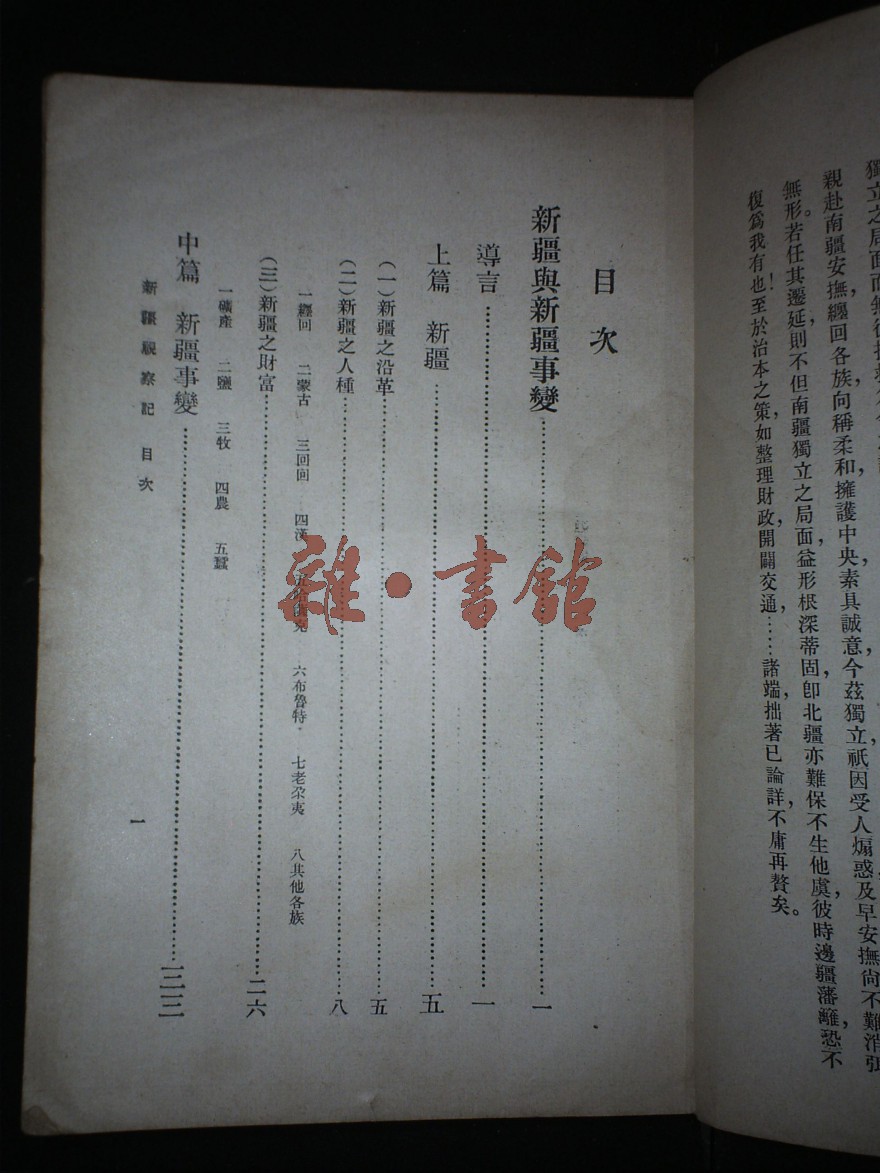 獨立之局面而無
親赴南疆安撫纏回各族向稱柔和擁護中央素具誠意今茲獨立祇因受人煽惑及早安撫尚不難消弭
無形。若任其遷延則不但南疆獨立之局面益形根深蒂固,卽北疆亦難保不生他虞,彼時邊疆藩籬,恐不
復爲我有也!至於治本之策,如整理財政,開闢交通……諸端,拙著已論詳,不庸再贅矣。
目次
新疆與新疆事變……一
導言……一
上篇 新疆……五
(一)新疆之沿革……五
(二)新疆之人種……八
一纏回 二蒙古 三回回 四漢 克 六布魯特 七老尕夷 八其他各族
(三)新疆之財富……二六
一礦產 二鹽 三牧 四農 五蠶
中篇 新疆事變……三三
新疆觀察記 目次
一
雜·書館